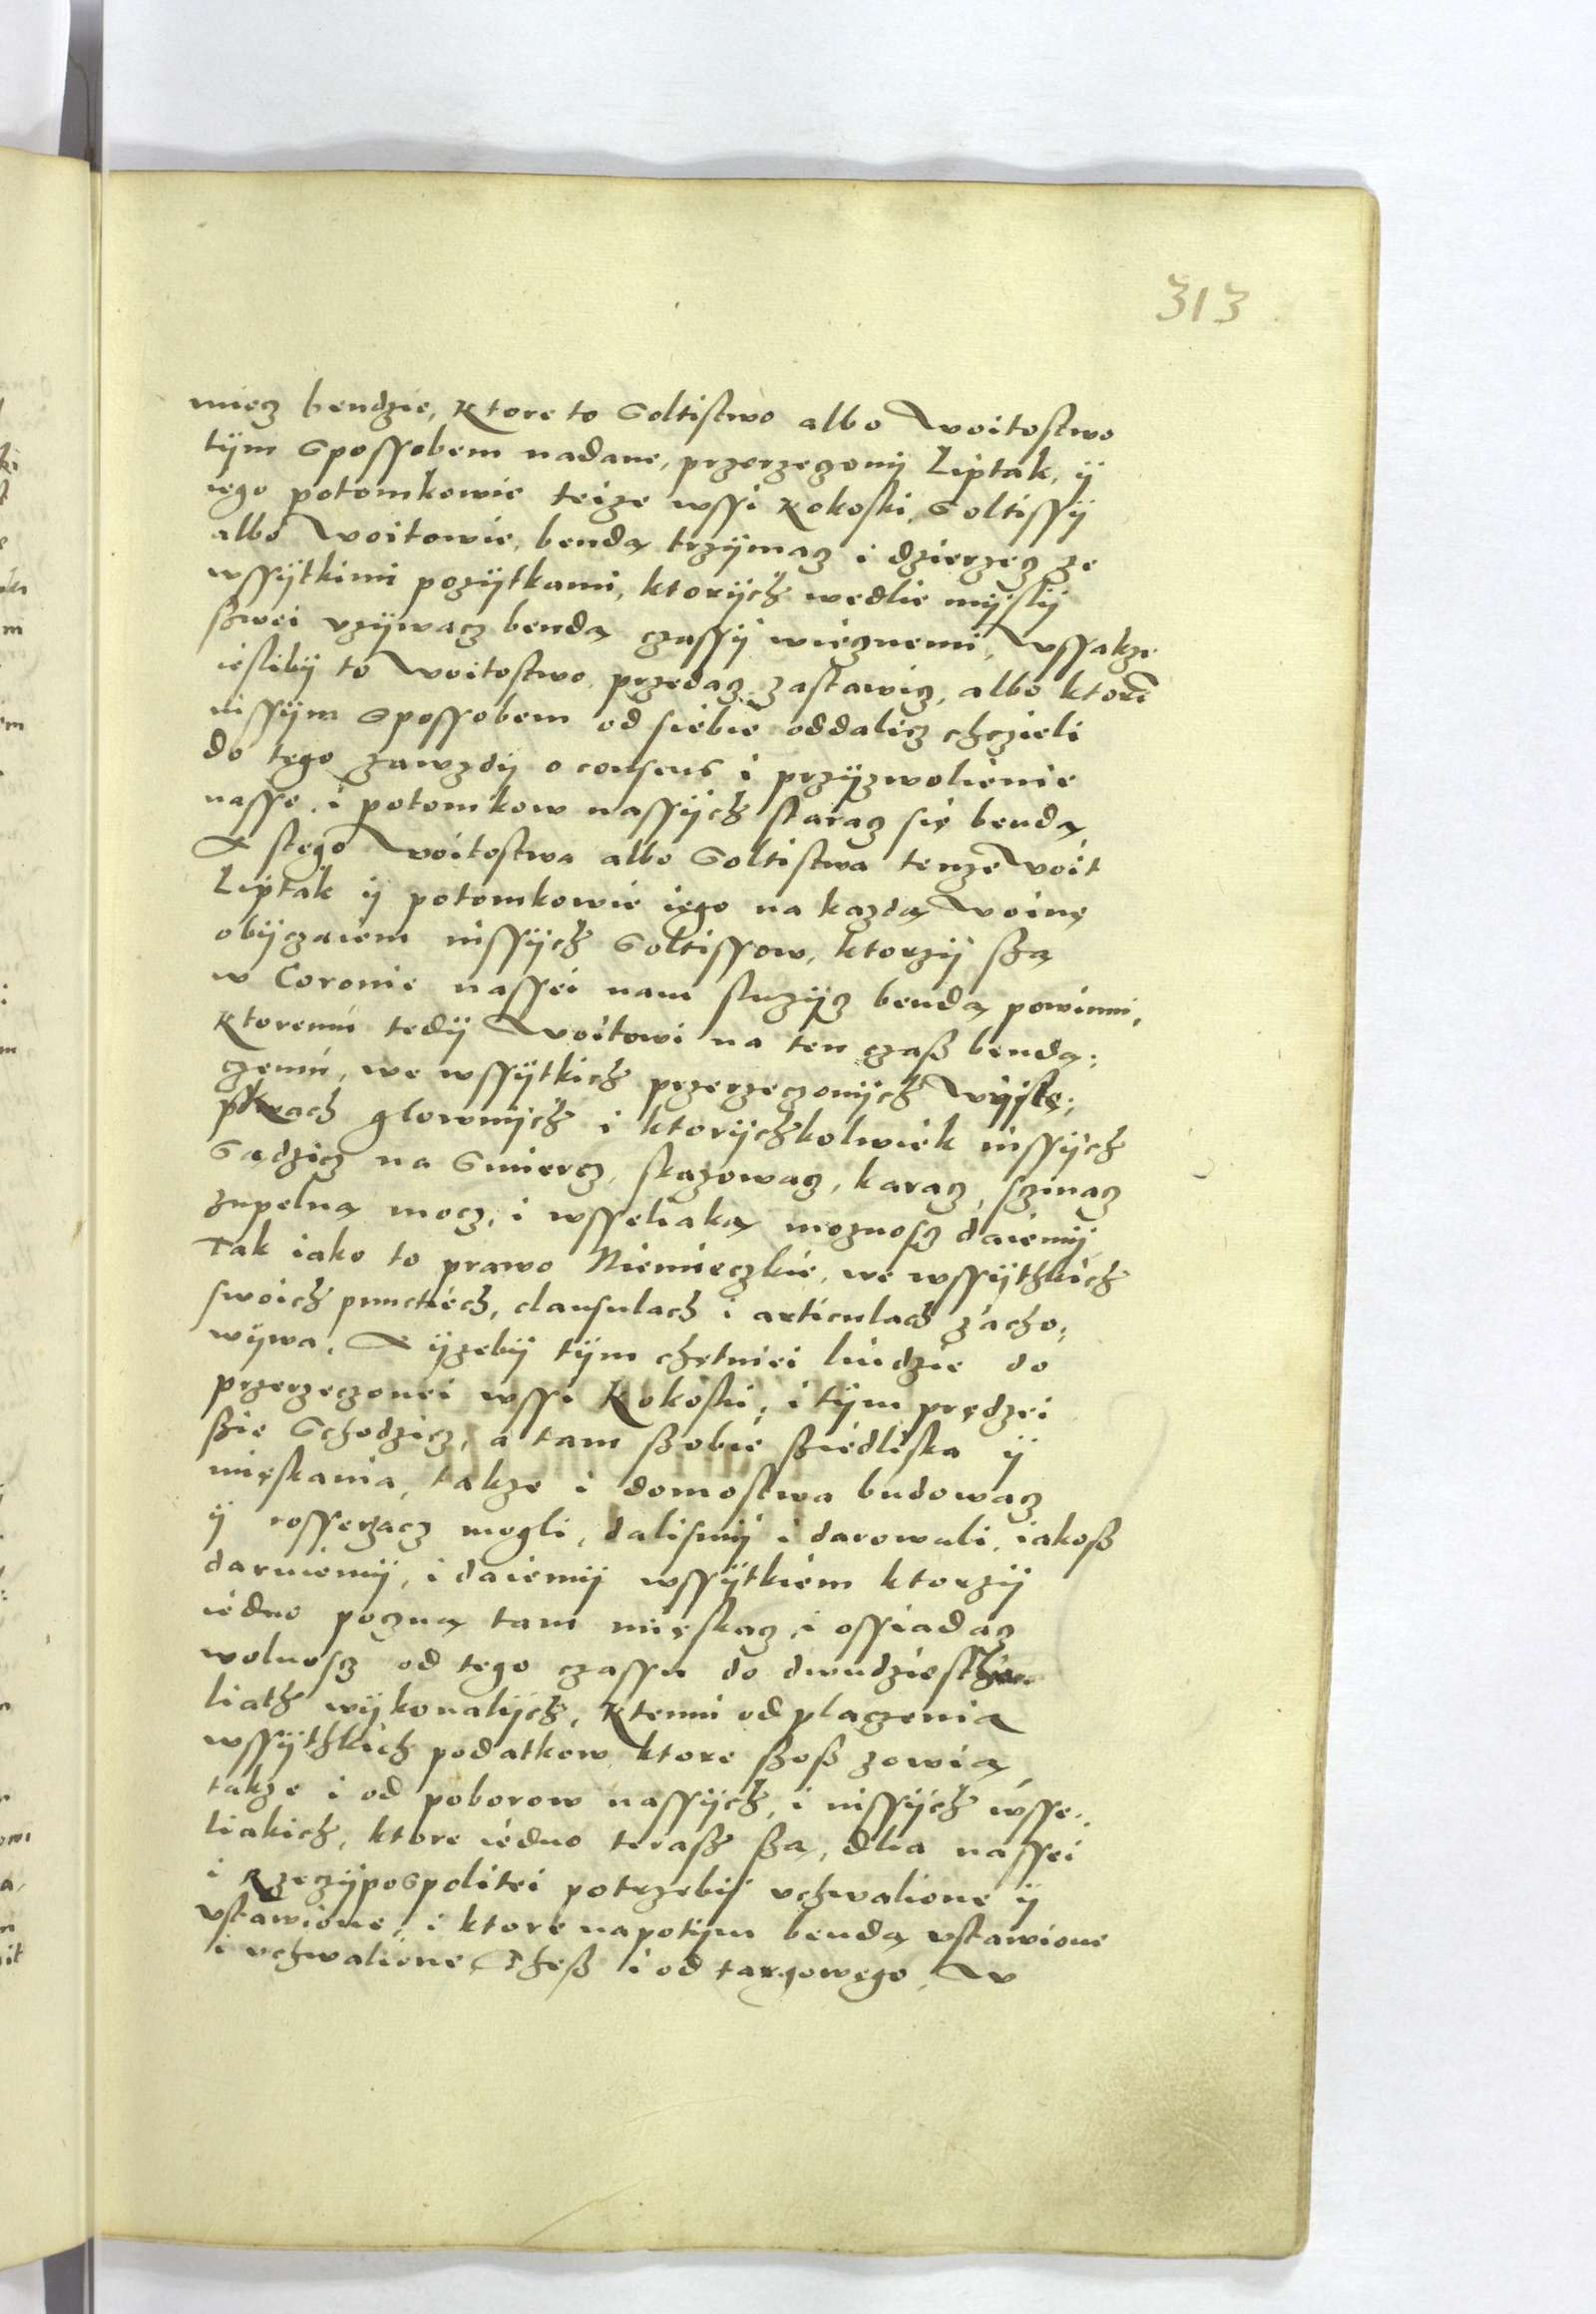 313
miecz bendzie, Ktore to Soltistwo albo Woitostwo
tÿm Spossobem nadane, przerzeczonÿ Liptak, ÿ
iego potomkowie teize wssi Kokoski, Soltissÿ
albo Woitowie, benda trzÿmacz i dzierzecz ze
wssÿtkimi pozÿtkami, ktorÿch wedlie mÿslÿ
ßwei vzÿwacz benda czassÿ wiecznemi, Wssakze
iesliby to Woitostwo przedacz zastawicz, albo ktorē
nissÿm Spossobem od siebie oddalicz chczieli
do tego zawzdÿ o consens i przÿzwolienie
nasse i potomkow nassÿch staracz się benda,
A stego Woitostwa albo Soltistwa tenze Woit
Liptak ÿ potomkowie iego na kazda Woinę
obÿczaiem nissÿch Soltissow, ktorzÿ ssa
w Coronie nassei nam sluzÿcz benda powinni,
Ktoremu tedÿ Woitowi na ten czaß benda:
czemu, we wssÿtkich przerzeczonÿch Wÿstę:
pkach glownÿch i ktorÿchkolwiek nissÿch
Sądzicz na Smiercz, skazowacz, karacz, sczinacz
zupelna mocz, i wsseliaka moznoscz daiemÿ
Tak iako to prawo Niemieczkie, we wssÿthkich
swoich punctiech, clausulach i articulach zacho:
wÿwa. A ÿzebÿ tÿm chętniei liudzie do
przerzeczonei wssi Kokoski, i tÿm prędzei
ßie Schodzicz, a tam ßobie ßiedliska ÿ
mięskania, takze i domostwa budowacz
ÿ rosserzacz mogli, dalismÿ i darowali, iakoß
daruiemÿ, i daiemÿ wssÿtkiem ktorzÿ
iedno poczna tam mięskacz i ossiadacz
wolnoscz od tego czassu do dwudziesthu
liath wÿkonalÿch, Ktemu od placzenia
wssÿthkich podatkow ktore ßoß zowia,
takze i od poborow nassÿch, i nissÿch wsse:
liakich, ktore iedno teraß ßa, dlia nassei
i Rzeczÿpospolitei potrzebÿ vchwalione ÿ
vstawione, i ktore napotÿm benda vstawione
i vchwalione, Theß i od targowego, W